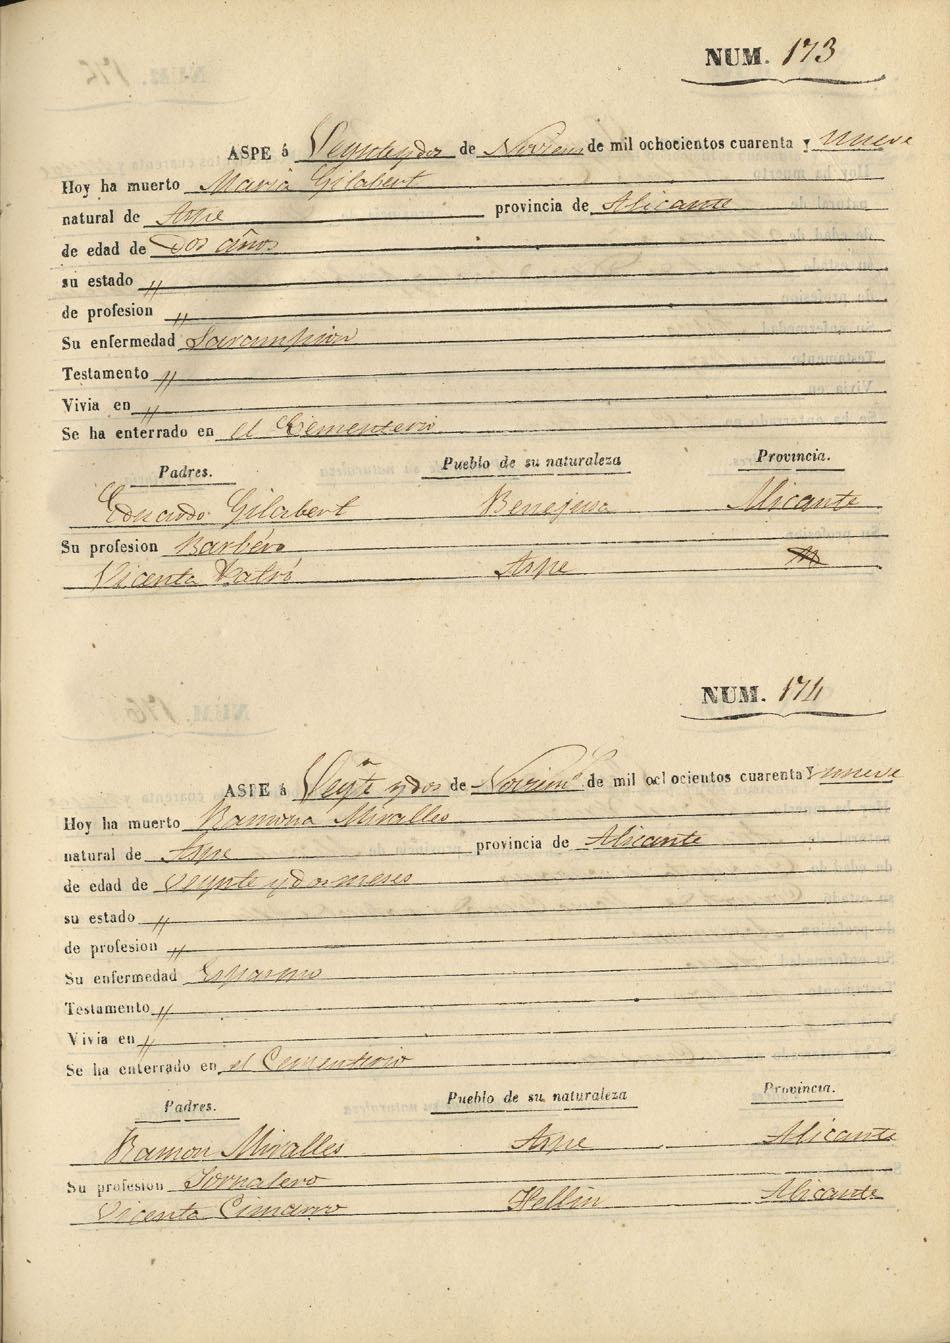 NUM. 173
ASPE á Veynteydos de Noviem de mil ochocientos cuarenta y nueve
Hoy ha muerto Maria Gilabert
natural de Aspe provincia de Alicante
de edad de Dos años
su estado "
de profesion "
Su enfermedad Sarampion
Testamento "
Vivia en "
Se ha enterrado en el Cementerio
Padres. Pueblo de su naturaleza Provincia.
Eduardo Gilabert Benejusa Alicante
Su profesion Barbéro
Vicenta Aspe
NUM. 174
ASPE á Veynt ydos de Noviem de mil ochocientos cuarenta y nueve
Hoy ha muerto Ramona Miralles
natural de Aspe provincia de Alicante
de edad de Veynte ydos meses
su estado "
de profesion "
Su enfermedad Espasmo
Testamento "
Vivia en "
Se ha enterrado en el Cementerio
Padres. Pueblo de su naturaleza Provincia.
Ramon Miralles Aspe Alicante
Su profesion Jornalero
Vicenta Cimarro Hellin Alicante